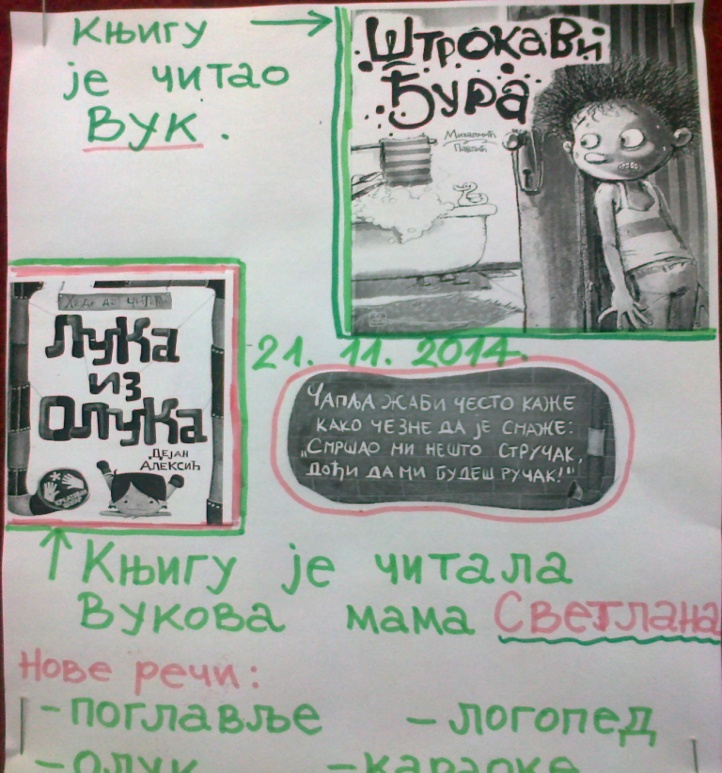 Књигу
је читао
Вук.
ШТРОКАВИ
ЂУРА
21. 11. 2014.
ЛУКА
ИЗ
ОЛУКА
ДЕЈАН
АЛЕКСИЋ
ЧАПЉА ЖАБИ ЧЕСТО КАЖЕ
КАКО ЧЕЗНЕ ДА ЈЕ СМАЖЕ:
„СМРШАО МИ НЕШТО СТРУЧАК,
ДОЂИ ДА МИ БУДЕШ РУЧАК!“
Књигу је читала
Вукова мама Светлана
Нове речи:
- поглавље - логопед
- олук - караоке